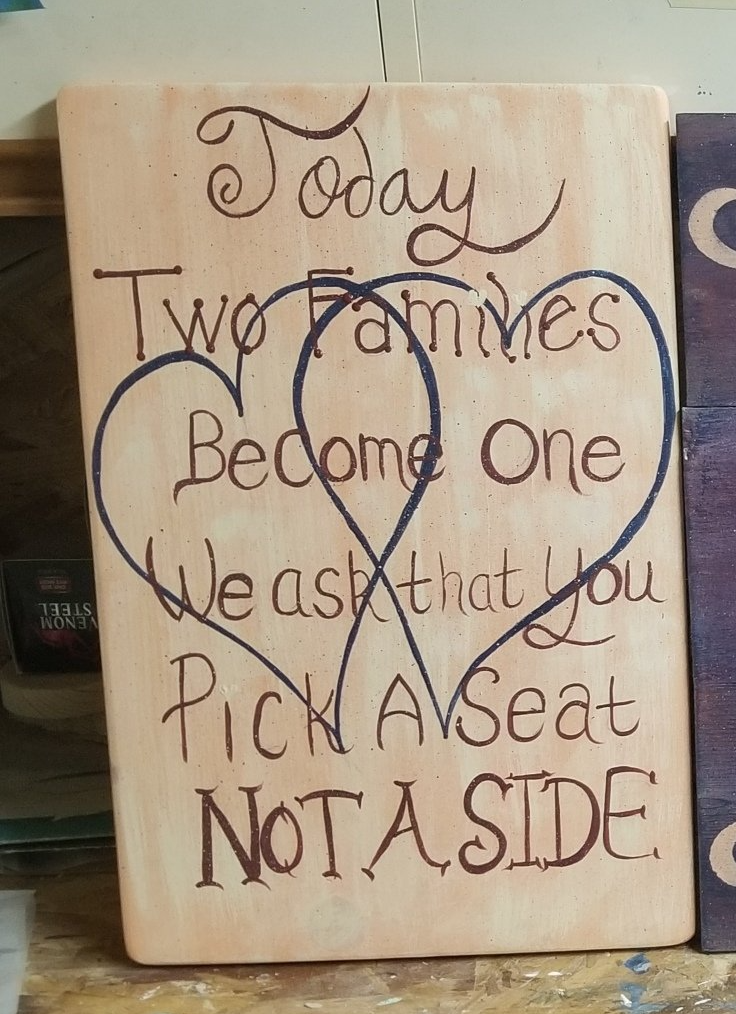 Today
Two Families
Become One
We ask that You
Pick A Seat
NOT A SIDE
VENOM
STEEL